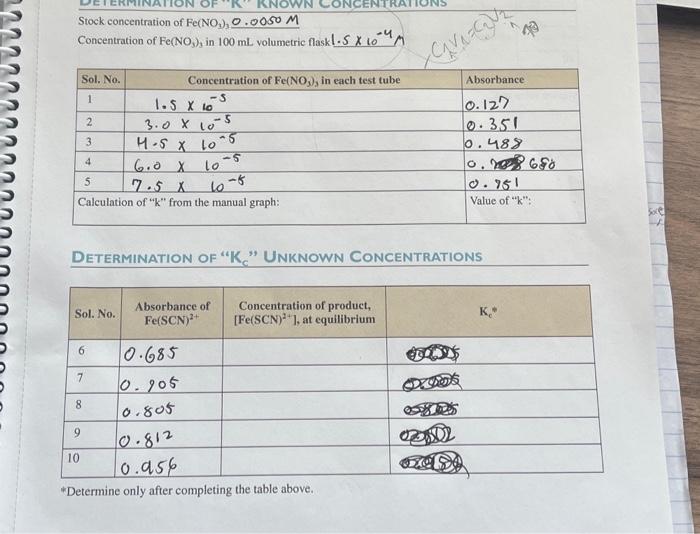 DETERMINATION OF "K" KNOWN CONCENTRATIONS
Stock concentration of Fe(NO₃)₃ 0.0050 M
Concentration of Fe(NO₃)₃ in 100 mL volumetric flask 1.5 x 10⁻⁴ M
C₁V₁=C₂V₂
Sol. No. Concentration of Fe(NO₃)₃ in each test tube Absorbance
1 1.5 x 10⁻⁵ 0.127
2 3.0 x 10⁻⁵ 0.351
3 4.5 x 10⁻⁵ 0.488
4 6.0 x 10⁻⁵ 0. 680
5 7.5 x 10⁻⁵ 0.951
Calculation of "k" from the manual graph: Value of "k":
DETERMINATION OF "Kc" UNKNOWN CONCENTRATIONS
Sol. No. Absorbance of Fe(SCN)²⁺ Concentration of product, [Fe(SCN)²⁺], at equilibrium Kc*
6 0.685
7 0.905
8 0.805
9 0.812
10 0.956
*Determine only after completing the table above.